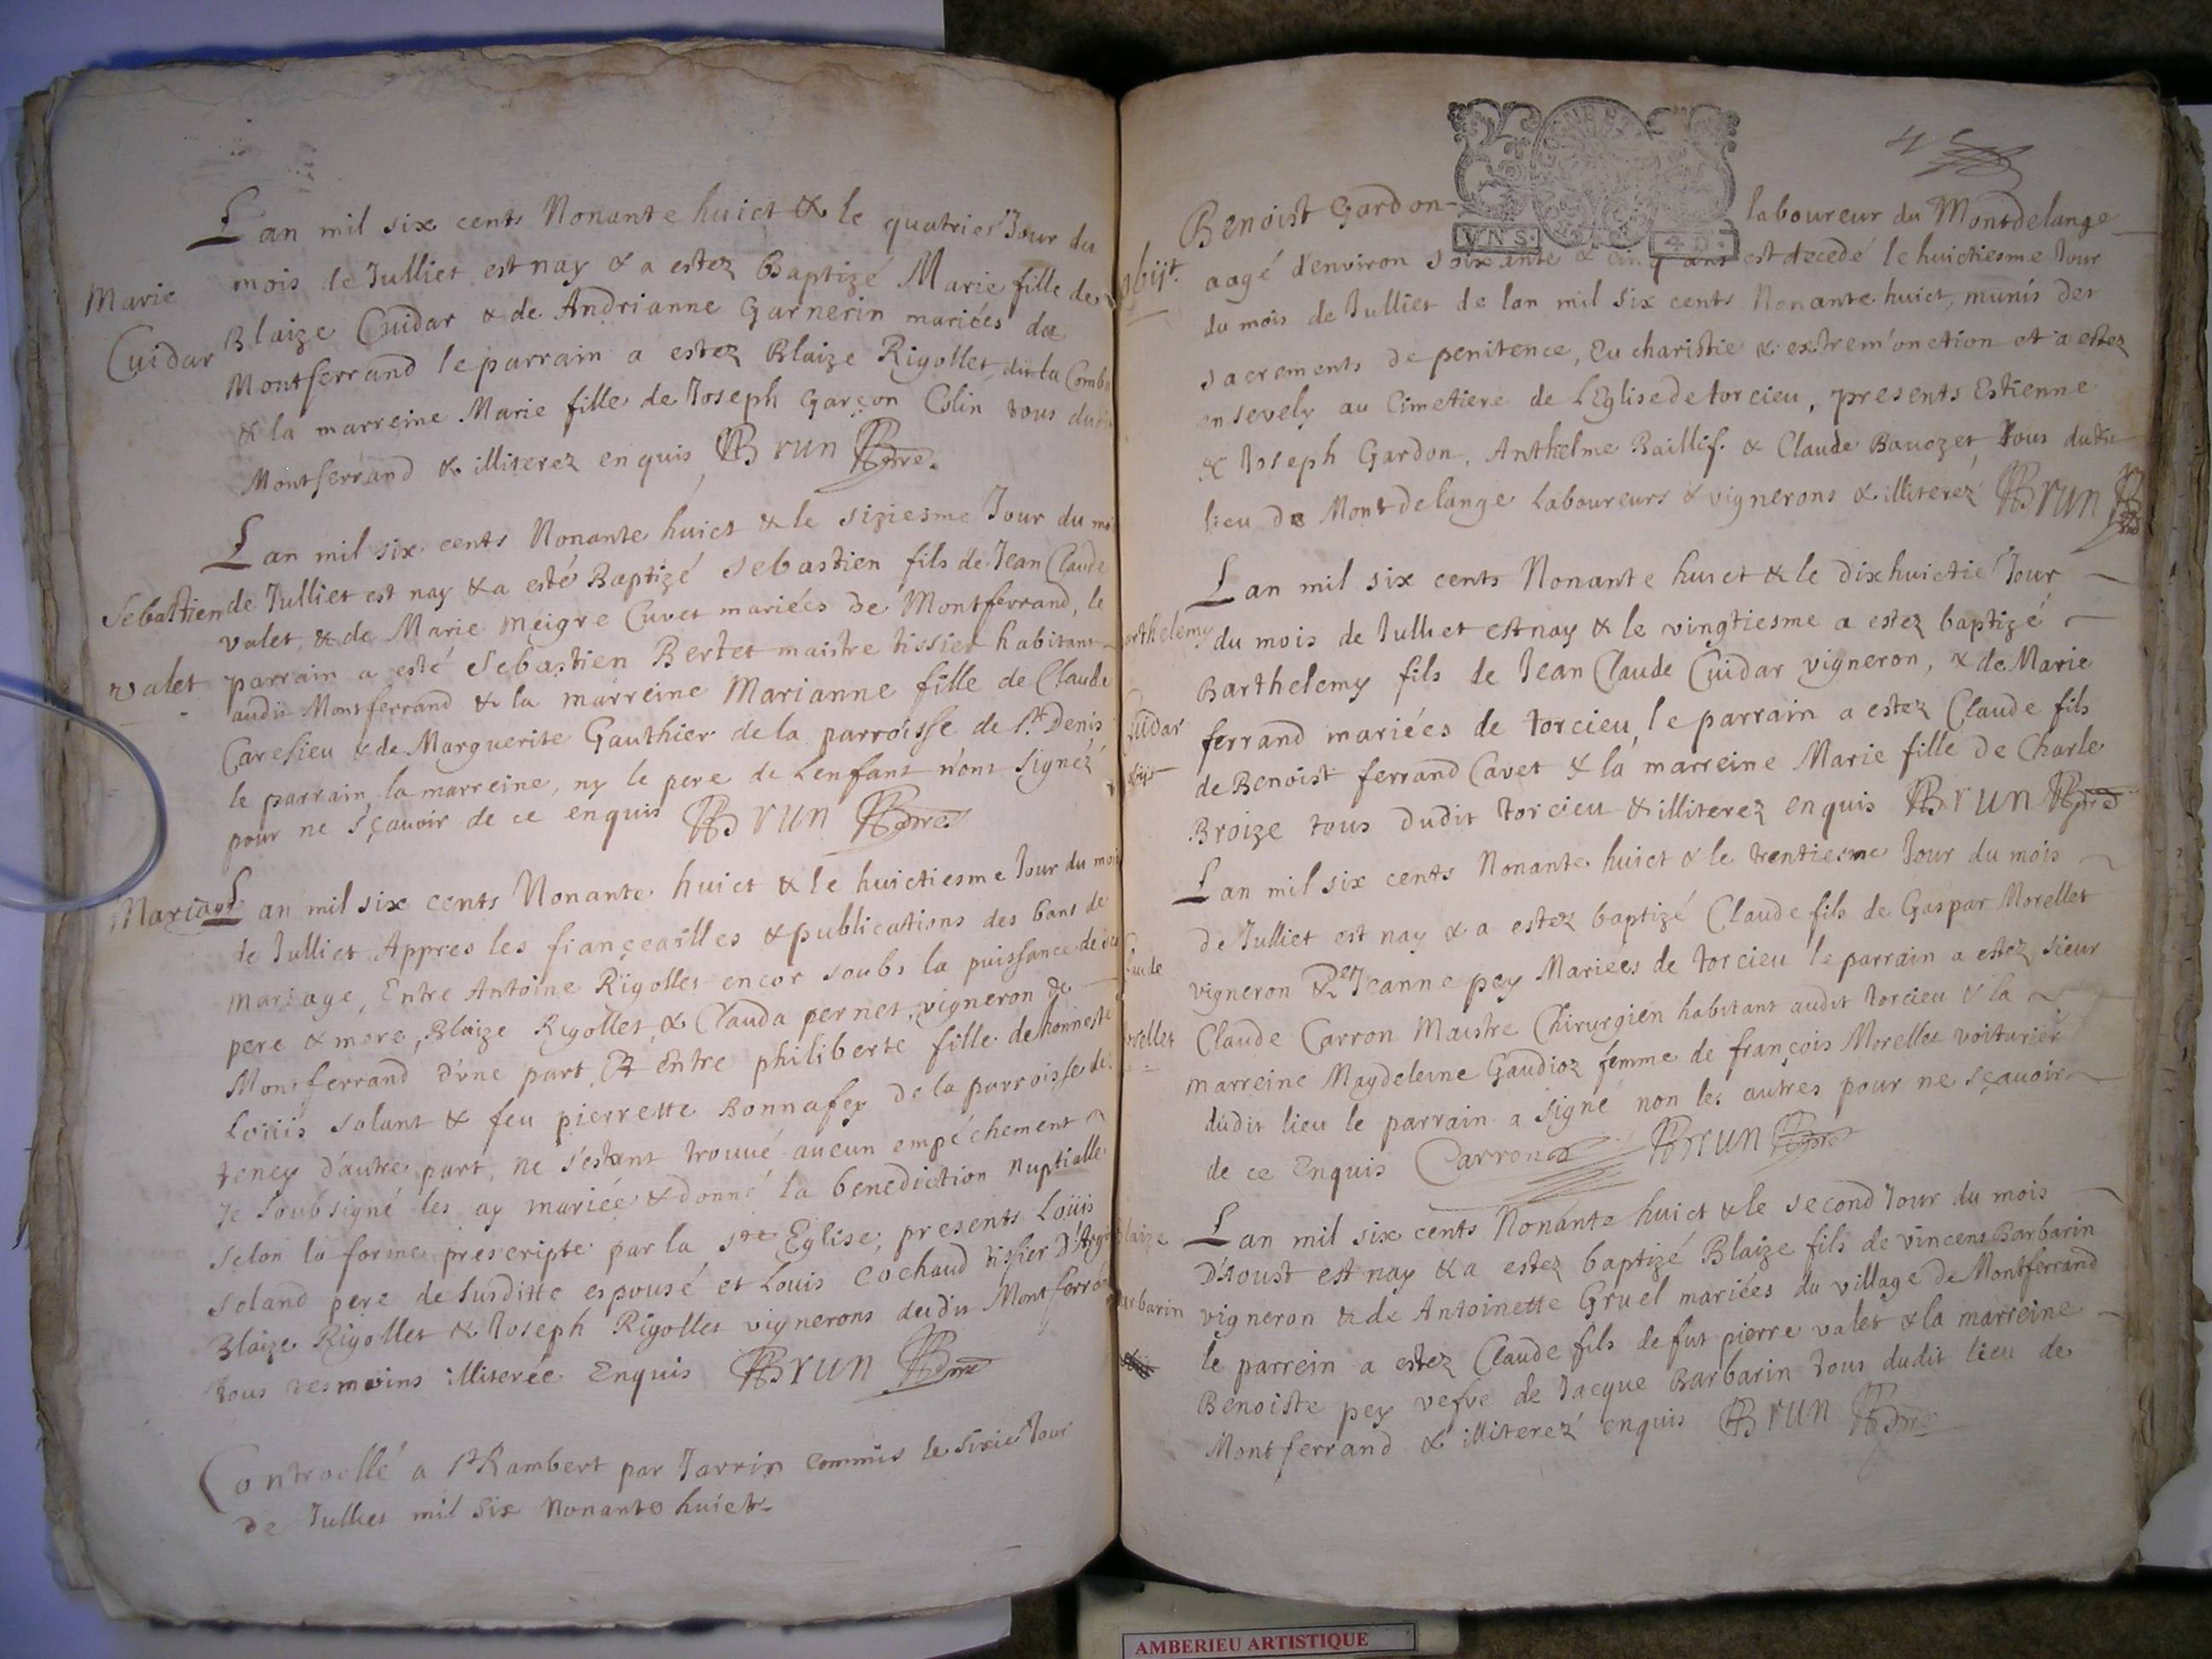 L an mil six cents Nonante huict & le quatries Jour du
Marie
mois de Julliet est nay & a estez Baptizé Marie fille de
Cuidar
Blaize Cuidar & de Andrianne Garnerin mariées da
Montferrand le parrain a estez Blaize Rigollet dit la Comb
& la marreine Marie fille de Joseph Garçon Colin tous dud
Montferrand & illiterez enquis Brun
L an mil six cents Nonante huict & le siziesme Jour du mo
Sebastien
de Julliet est nay & a esté Baptizé Sebastien fils de Jean Claude
valet, & de Marie meigre Cuvet mariées de Montferrand, le
valet
parrain a esté Sebastien Bertet maistre tissier habitant
audit Montferrand & la marreine Marianne fille de Claude
Caresieu & de Marguerite Gauthier de la parroisse de St. Denis
le parrain, la marreine, ny le pere de Lenfant n'ont signéz
pour ne sçavoir de ce enquis Brun
Mariage
L an mil six cents Nonante huict & le huictiesme Jour du mois
de Julliet Appres les fiançeailles & publications des bans de
mariage, Entre Antoine Rigollet encor soubs la puissance de
pere & mere, Blaize Rigollet & Clauda pernet, vigneron de
Montferrand d'vne part, Et Entre philiberte fille de honneste
Loüis solant & feu pierrette Bonnafey de la parroisse de
tency d'autre part, ne s'estant trouué aucun empéchement
Je soubsigné les ay mariée & donné la benediction nuptialle
selon la forme prescripte par la ste Eglise, presents Loüis
soland pere de susditte espousé et Louis cochaud tissier D'Arg
Blaize Rigollet & Joseph Rigollet vignerons dudit Montferran
tous tesmoins illiterée Enquis Brun
Controollé a St Rambert par Jarrin commis le sixie Jour
de Julliet mil six Nonante huict
VNS. 4D.
Benoist Gardon laboureur du Montdelange
obijt.
aagé d'environ soixante & cinq ans est decedé le huictiesme Jour
du mois de Julliet de lan mil six cents Nonante huict, munis des
sacrements de penitence, Eucharistie & extrem'onction et a estez
ensevely au Cimetiere de L'Eglise de torcieu, presents Estienne
& Joseph Gardon, Anthelme Baillif. & Claude Bauozet, tous dudit
lieu de Montdelange Laboureurs & vignerons & illiterez Brun
L an mil six cents Nonante huict & le dixhuictie Jour
arthelemy
du mois de Julliet est nay & le vingtiesme a estez baptizé
Barthelemy fils de Jean Claude Cuidar vigneron, & de Marie
Cuidar
ferrand mariées de torcieu, le parrain a estez Claude fils
de Benoist ferrand Cavet & la marreine Marie fille de Charle
Broize tous dudit torcieu & illiterez enquis Brun
L an mil six cents Nonante huict & le trentiesme Jour du mois
de Julliet est nay & a estez baptizé Claude fils de Gaspar Morellet
aude
vigneron & de Jeanne pey Mariées de torcieu le parrain a estez sieur
orellet
Claude Carron Maistre Chirurgien habitant audit torcieu & la
marreine Maydeleine Gaudioz femme de françois Morellet voiturier
dudit lieu le parrain a signé non les autres pour ne sçauoir
de ce Enquis Carron Brun
L an mil six cents Nonante huict & le second Jour du mois
Blaize
D'Aoust est nay & a estez baptizé Blaize fils de vincent Barbarin
arbarin
vigneron & de Antoinette Gruel mariées du village de Montferrand
le parrein a estez Claude fils de fut pierre valet & la marreine
Benoiste pey vefve de Jacque Barbarin tous dudit lieu de
Montferrand & illiterez enquis Brun
AMBERIEU ARTISTIQUE